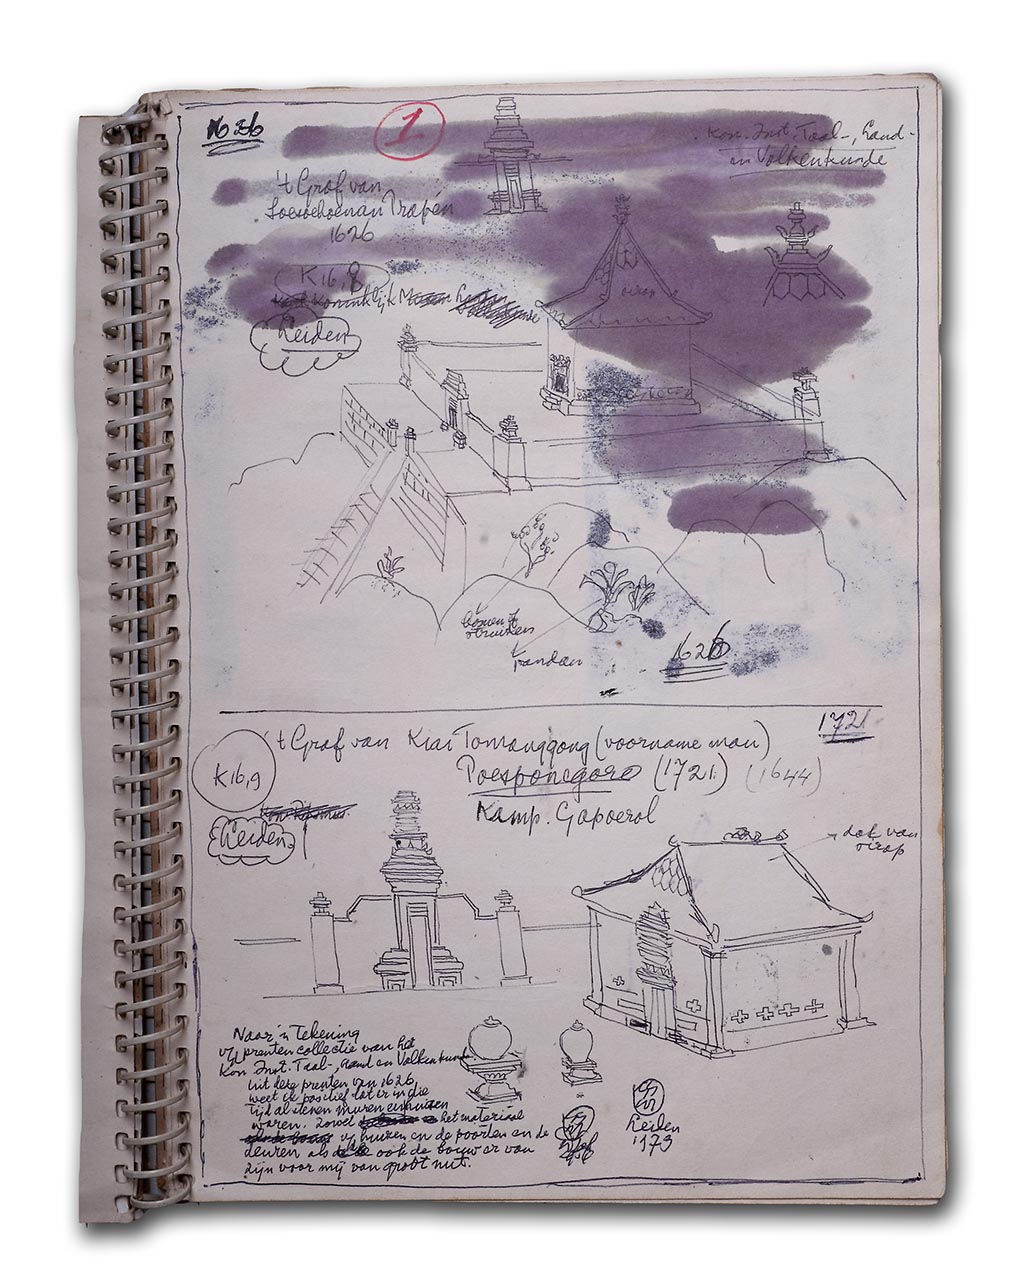 1626
1
Kon. Inst. Taal-, Land-
en Volkenkunde
't Graf van
Soesoehoenan Prapen
1626
K16,8
Leiden
sirap
bomen &
struiken
pandan
1626
1721
't Graf van Kiai Tomanggong (voorname man)
Poesponegoro (1721) (1644)
Kamp. Gapoerol
K16,9
Leiden
dak van
sirap
Naar 'n Tekening
v/d prenten collectie van het
Kon. Inst. Taal-, Land en Volkenkunde
uit deze prenten van 1626
weet ik positief dat er in die
tijd al stenen muren
waren. Zowel het materiaal
v/ huizen en de poorten en de
deuren als ook de bouw er van
zijn voor mij van groot nut.
Leiden
1973